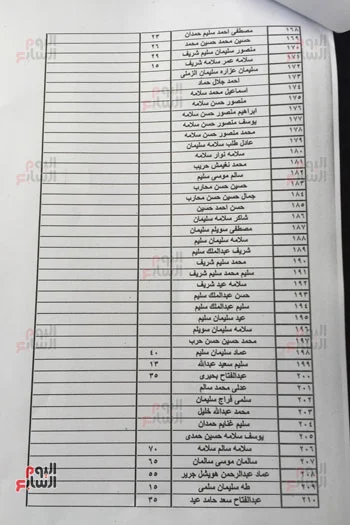 ١٦٨ مصطفى احمد سليم حمدان ٢٣
١٦٩ حسين محمد حسين محمد ٢٦
١٧٠ منصور سليمان سليم شريف ٢٩
١٧١ سلامه عمر سلامه شريف ١٥
١٧٢ سليمان عزاره سليمان الزملى
١٧٣ احمد جلال حماد
١٧٤ اسماعيل محمد سلامه
١٧٥ منصور حسن سلامه
١٧٦ ابراهيم منصور حسن سلامه
١٧٧ يوسف منصور حسن سلامه
١٧٨ محمد منصور حسن سلامه
١٧٩ عادل طلب سلامه سليمان
١٨٠ سلامه نوار سلامه
١٨١ محمد نغيمش حريب
١٨٢ سالم موسى سليم
١٨٣ حسين حسن محارب
١٨٤ جمال حسين حسن محارب
١٨٥ حسن احمد حسين
١٨٦ شاكر سلامه سليمان
١٨٧ مصطفى سويلم سليمان
١٨٨ سلامه سليمان سليم
١٨٩ شريف عبدالملك سليم
١٩٠ محمد سليم شريف
١٩١ سليم محمد سليم شريف
١٩٢ سلامه عيد شريف
١٩٣ حسن عبدالملك سليم
١٩٤ سليم عبدالملك سليم
١٩٥ عيد سليمان سليم
١٩٦ سلامه سليمان سويلم
١٩٧ محمد حسين حسن حرب
١٩٨ عماد سليمان سليم ٤٠
١٩٩ سليم سعيد عبدالله ١٣
٢٠٠ عبدالفتاح بحيرى ٣٥
٢٠١ عدلى محمد سالم
٢٠٢ سلمى فراج سليمان
٢٠٣ محمد عبدالله خليل
٢٠٤ سليم غنايم حمدان
٢٠٥ يوسف سلامه حسين حمدى
٢٠٦ سلامه سالم سلامه ٧٠
٢٠٧ سالمان موسى سالمان ٦٥
٢٠٨ عماد عبدالرحمن هويشل جرير ٥٥
٢٠٩ طه سليمان سلمى ١٥
٢١٠ عبدالفتاح سعد حامد عيد ٣٥
اليوم السابع
اليوم السابع
اليوم السابع
اليوم السابع